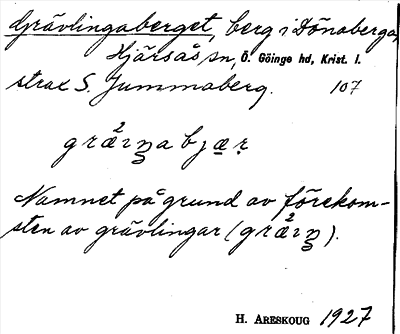 Grävlingaberget, berg i Dönaberga,
Hjärsås sn, Ö. Göinge hd, Krist. l.
strax S. Jummaberg. 107
græ²ɪŋabjær
Namnet på grund av förekom-
sten av grävlingar (græ²ɪŋ).
H. ARESKOUG 1927